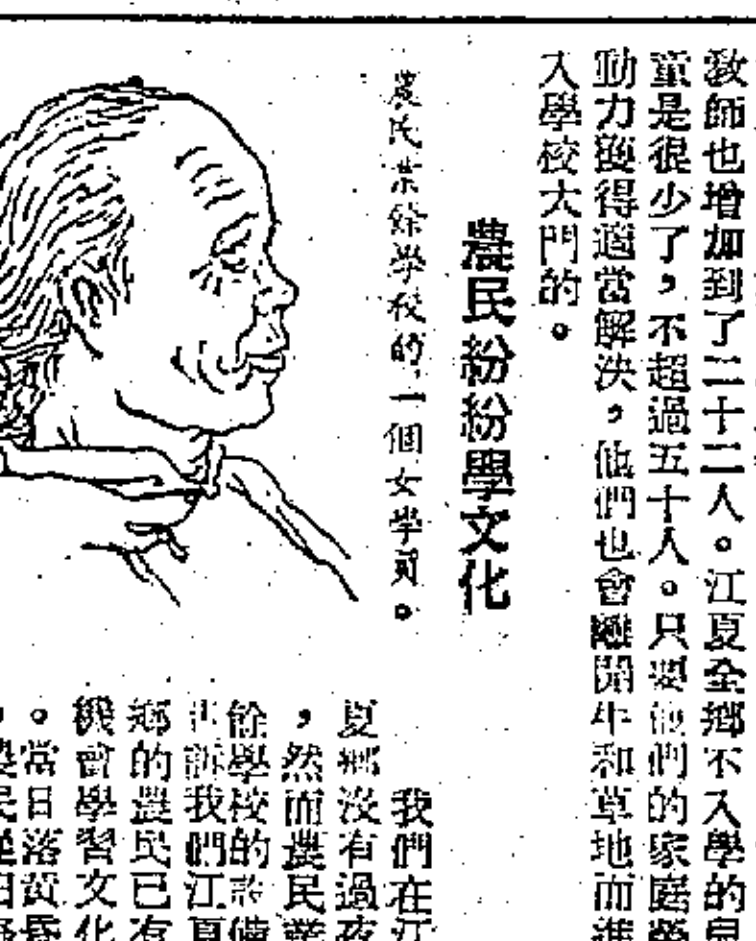 教師也增加到了二十二人。江夏全鄉不入學的兒
童是很少了，不超過五十人。只要他們的家庭勞
動力獲得適當解決，他們也會離開牛和草地而進
入學校大門的。
農民紛紛學文化
農民業餘學校的一個女學員。
我們在江
夏鄉沒有過夜
，然而農民業
餘學校的設備
告訴我們江夏
鄉的農民已有
機會學習文化
。當日落黃昏